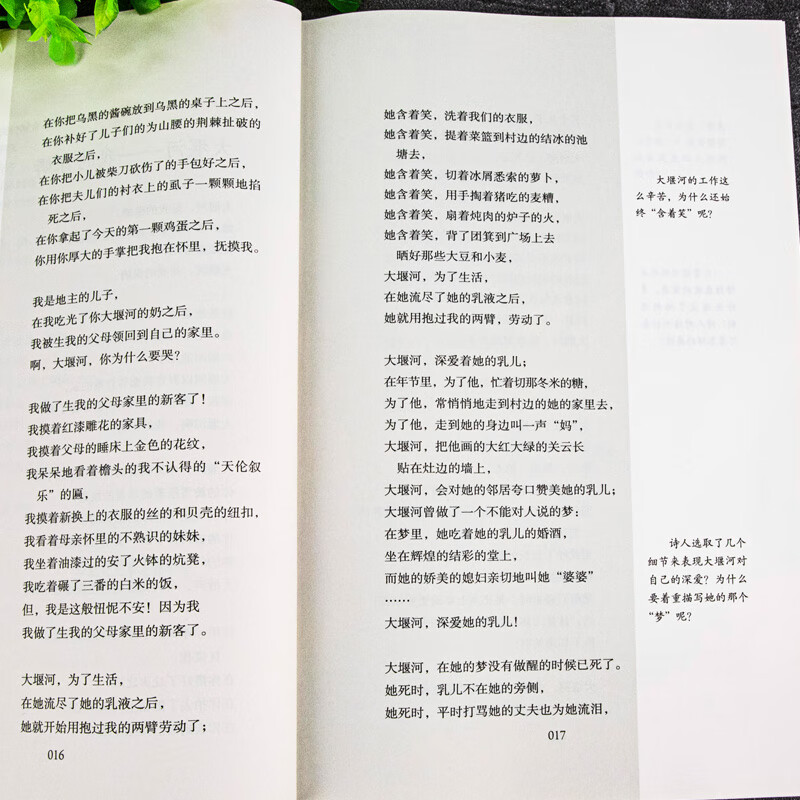 在你把乌黑的酱碗放到乌黑的桌子上之后，
在你补好了儿子们的为山腰的荆棘扯破的
衣服之后，
在你把小儿被柴刀砍伤了的手包好之后，
在你把夫儿们的衬衣上的虱子一颗颗地掐
死之后，
在你拿起了今天的第一颗鸡蛋之后，
你用你厚大的手掌把我抱在怀里，抚摸我。
我是地主的儿子，
在我吃光了你大堰河的奶之后，
我被生我的父母领回到自己的家里。
啊，大堰河，你为什么要哭？
我做了生我的父母家里的新客了！
我摸着红漆雕花的家具，
我摸着父母的睡床上金色的花纹，
我呆呆地看着檐头的我不认得的“天伦叙
乐”的匾，
我摸着新换上的衣服的丝的和贝壳的纽扣，
我看着母亲怀里的不熟识的妹妹，
我坐着油漆过的安了火钵的炕凳，
我吃着碾了三番的白米的饭，
但，我是这般忸怩不安！因为我
我做了生我的父母家里的新客了。
大堰河，为了生活，
在她流尽了她的乳液之后，
她就开始用抱过我的两臂劳动了；
016
她含着笑，洗着我们的衣服，
她含着笑，提着菜篮到村边的结冰的池
塘去，
她含着笑，切着冰屑悉索的萝卜，
她含着笑，用手掏着猪吃的麦糟，
她含着笑，扇着炖肉的炉子的火，
她含着笑，背了团箕到广场上去
晒好那些大豆和小麦，
大堰河，为了生活，
在她流尽了她的乳液之后，
她就用抱过我的两臂，劳动了。
大堰河，深爱着她的乳儿；
在年节里，为了他，忙着切那冬米的糖，
为了他，常悄悄地走到村边的她的家里去，
为了他，走到她的身边叫一声“妈”，
大堰河，把他画的大红大绿的关云长
贴在灶边的墙上，
大堰河，会对她的邻居夸口赞美她的乳儿；
大堰河曾做了一个不能对人说的梦：
在梦里，她吃着她的乳儿的婚酒，
坐在辉煌的结彩的堂上，
而她的娇美的媳妇亲切地叫她“婆婆”
……
大堰河，深爱她的乳儿！
大堰河，在她的梦没有做醒的时候已死了。
她死时，乳儿不在她的旁侧，
她死时，平时打骂她的丈夫也为她流泪，
017
大堰河的工作这
么辛苦，为什么还始
终“含着笑”呢？
诗人选取了几个
细节来表现大堰河对
自己的深爱？为什么
要着重描写她的那个
“梦”呢？